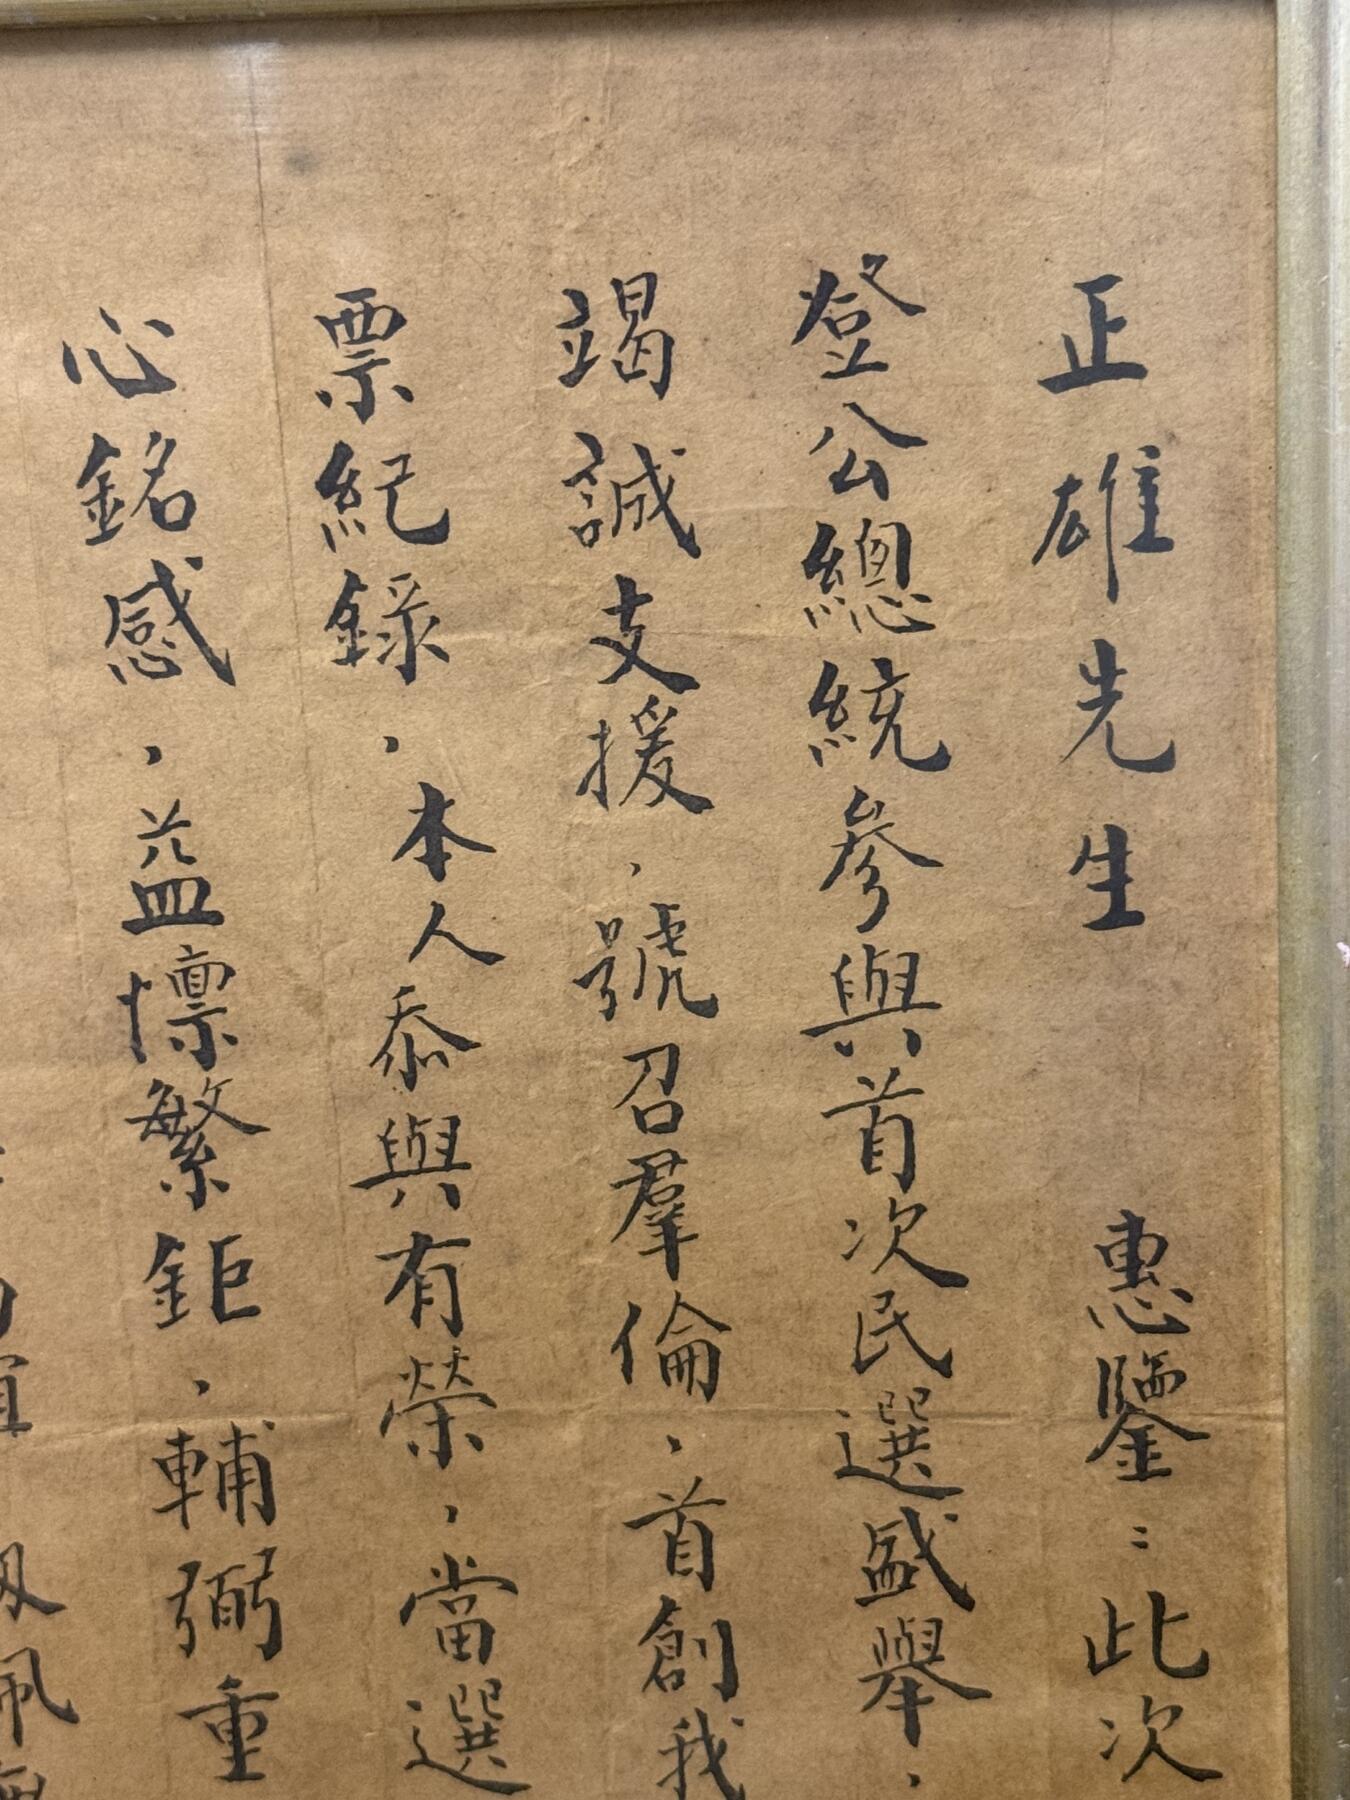 正雄先生　惠鑒：此次
登公總統參與首次民選盛舉，
竭誠支援，號召羣倫，首創我
票紀錄，本人忝與有榮，當選
心銘感，益懍繁鉅，輔弼重